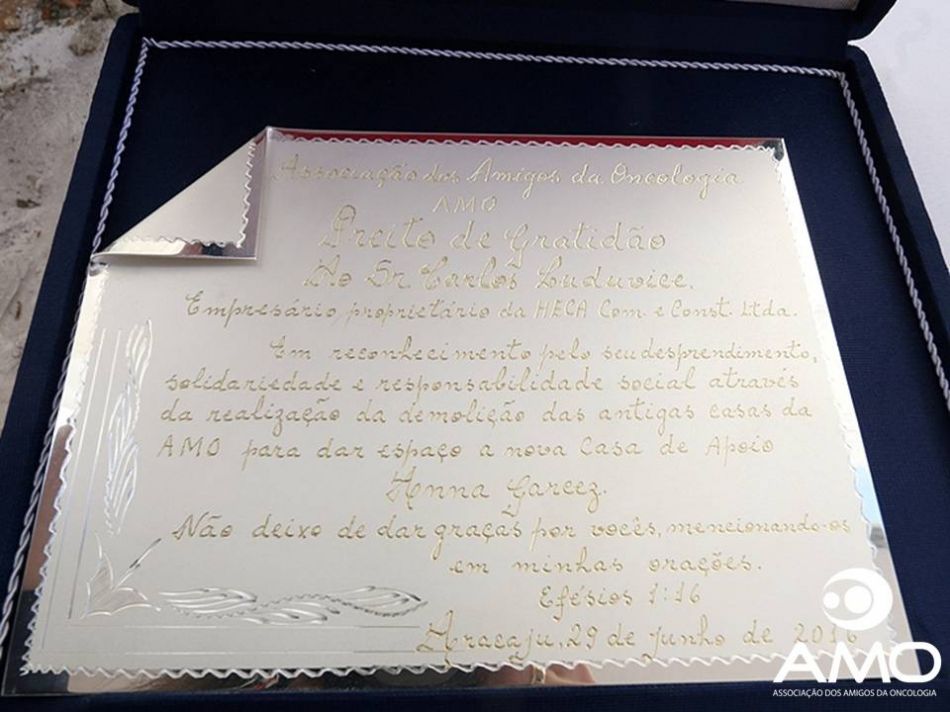 Associação dos Amigos da Oncologia
AMO
Preito de Gratidão
Ao Sr Carlos Luduvice.
Empresário, proprietário da HECA Com. e Const. Ltda.
Em reconhecimento pelo seu desprendimento,
solidariedade e responsabilidade social através
da realização da demolição das antigas casas da
AMO para dar espaço a nova Casa de Apoio
Anna Garcez.
Não deixo de dar graças por vocês, mencionando-os
em minhas orações.
Efésios 1:16
Aracaju, 29 de junho de 2016
AMO
ASSOCIAÇÃO DOS AMIGOS DA ONCOLOGIA